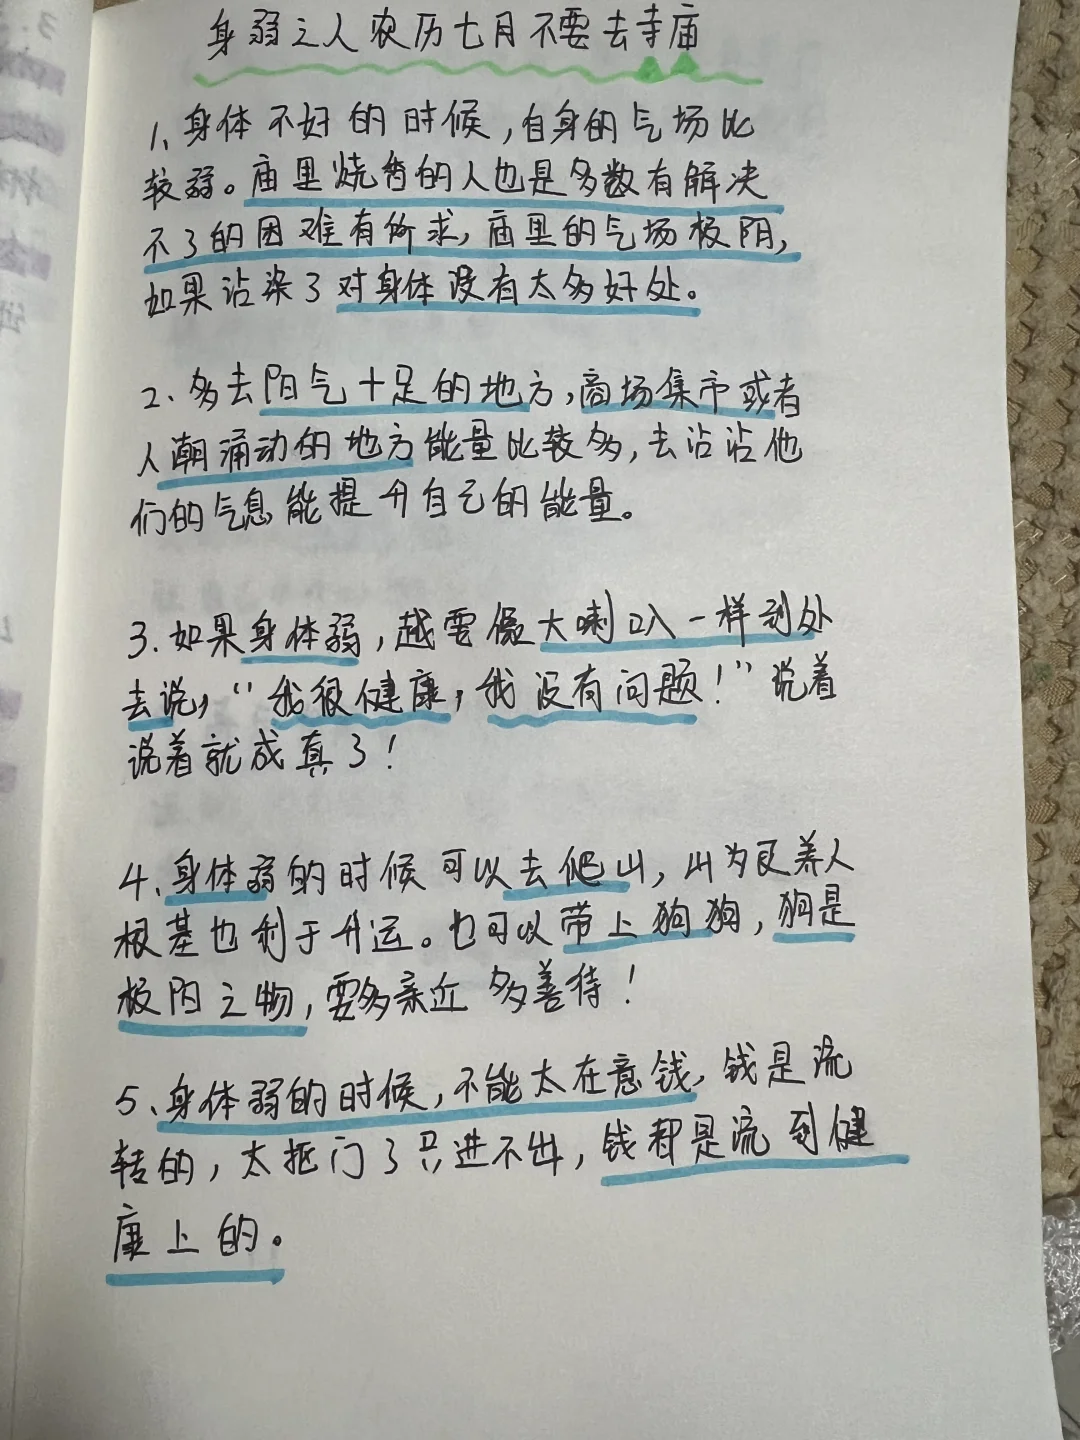 身弱之人农历七月不要去寺庙
1、身体不好的时候,自身的气场比
较弱。庙里烧香的人也是多数有解决
不了的困难有所求,庙里的气场极阴,
如果沾染了对身体没有太多好处。
2、多去阳气十足的地方,商场集市或者
人潮涌动的地方能量比较多,去沾沾他
们的气息能提升自己的能量。
3、如果身体弱,越要像大喇叭一样到处
去说,“我很健康,我没有问题!”说着
说着就成真了!
4、身体弱的时候可以去爬山,山为艮养人
根基也利于升运。也可以带上狗狗,狗是
极阳之物,要多亲近多善待!
5、身体弱的时候,不能太在意钱,钱是流
转的,太抠门了只进不出,钱都是流到健
康上的。